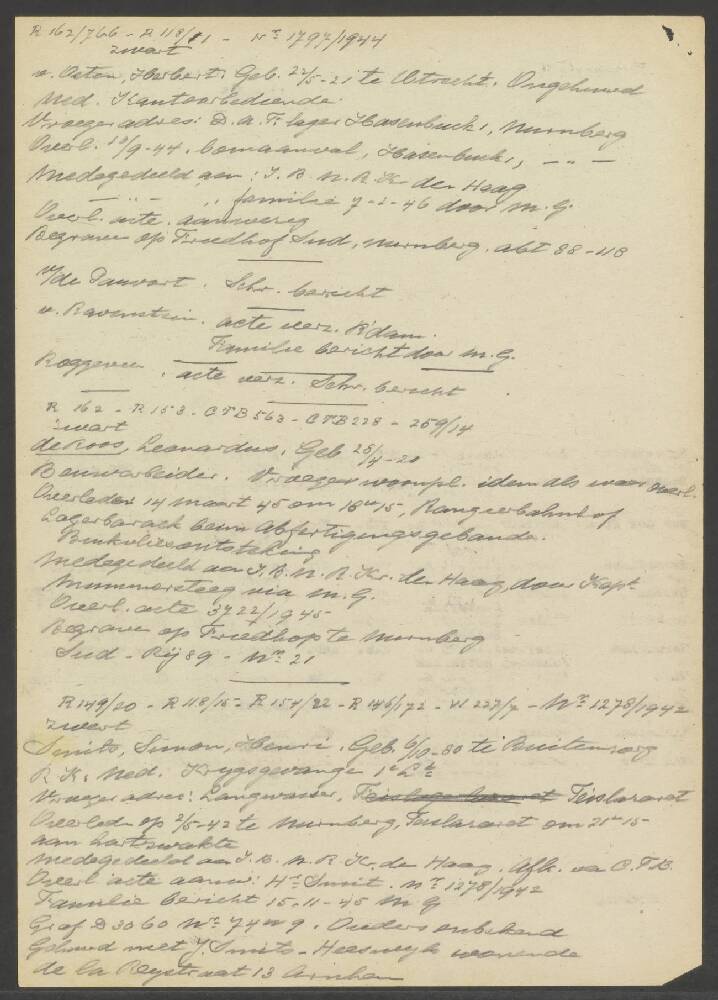 R 162/766 - R 118/11 - No 1797/1944
zwart
v. Osten, Herbert, Geb. 22/5-21 te Utrecht. Ongehuwd
Ned. Kantoorbediende.
Vroeger adres: D.A.F. lager Hasenbuck 1, Nurnberg
Overl. 10/9-44, bomaanval, Hasenbuck 1, — " —
Medegedeeld aan: I.B.N.R.Kr. den Haag
— " — " — " familie 7-2-46 door M.G.
Overl. acte aanwezig
Begraven op Friedhof Sud, Nurnberg. abt 88-118
v/de Pauvort. Schr. bericht
v. Ravenstein. acte verz. R'dam.
Familie bericht door M.G.
Roggeveen. acte verz. Schr. bericht
R 162 - R 153 - CTB 563 - CTB 228 - 259/14
zwart
de Roos, Leonardus, Geb 25/4-20
Bouwarbeider. Vroeger woonpl. idem als waar overl.
Overleden 14 maart 45 om 18 u 15, Rangierbahnhof
Lagerbarack beim Abfertigungsgebaude.
Buikvliesontsteking
Medegedeeld aan I.B.N.R.Kr. den Haag, door Kapt
Mummersteeg via M.G.
Overl. acte 3722/1945
Begraven op Friedhop te Nurnberg
Sud - Rij 89 - No 21
R 149/20 - R 118/15 - R 154/22 - R 146/172 - VI 227/7 - No 1278/1942
zwart
Smits, Simon, Henri, Geb. 6/10-80 te Buitenzorg
R.K. Ned. Krygsgevange 1e Lt
Vroeger adres: Langwasser, Teislazaret
Overleden op 2/5-42 te Nurnberg, Teislazaret om 21 u 15
aan hartzwakte
Medegedeeld aan I.B.N.R.Kr. de Haag. Afk. va C.T.B.
Overl acte aanw: Hr Smit. No 1278/1942
Familie bericht 15-11-45 M.G
Graf D 3060 No 74 W 9. Ouders onbekend
Gehuwd met J. Smits-Heeswyk wonende
de la Reystraat 13 Arnhem